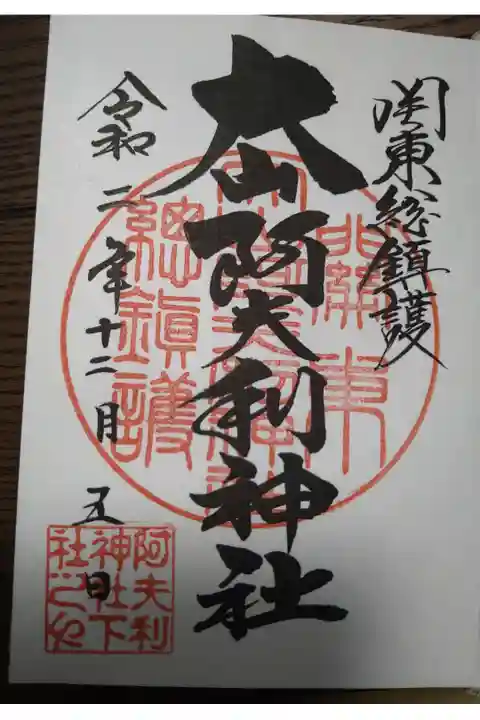 関東総鎮護
大山阿夫利神社
令和二年十二月五日
関東
總鎮護
阿夫利
神社下
社之印